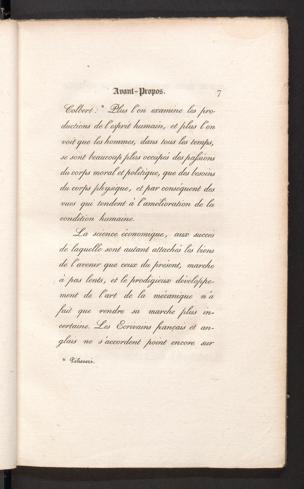 Avant-Propos. 7
Colbert : * Plus l'on examine les pro-
ductions de l'esprit humain, et plus l'on
voit que les hommes, dans tous les temps,
se sont beaucoup plus occupés des passions
du corps moral et politique, que des besoins
du corps physique, et par conséquent des
vues qui tendent à l'amélioration de la
condition humaine.
La science économique, aux succès
de laquelle sont autant attachés les biens
de l'avenir que ceux du présent, marche
à pas lents, et le prodigieux développe-
ment de l'art de la mécanique n'a
fait que rendre sa marche plus in-
certaine. Les Ecrivains français et an-
glais ne s'accordent point encore sur